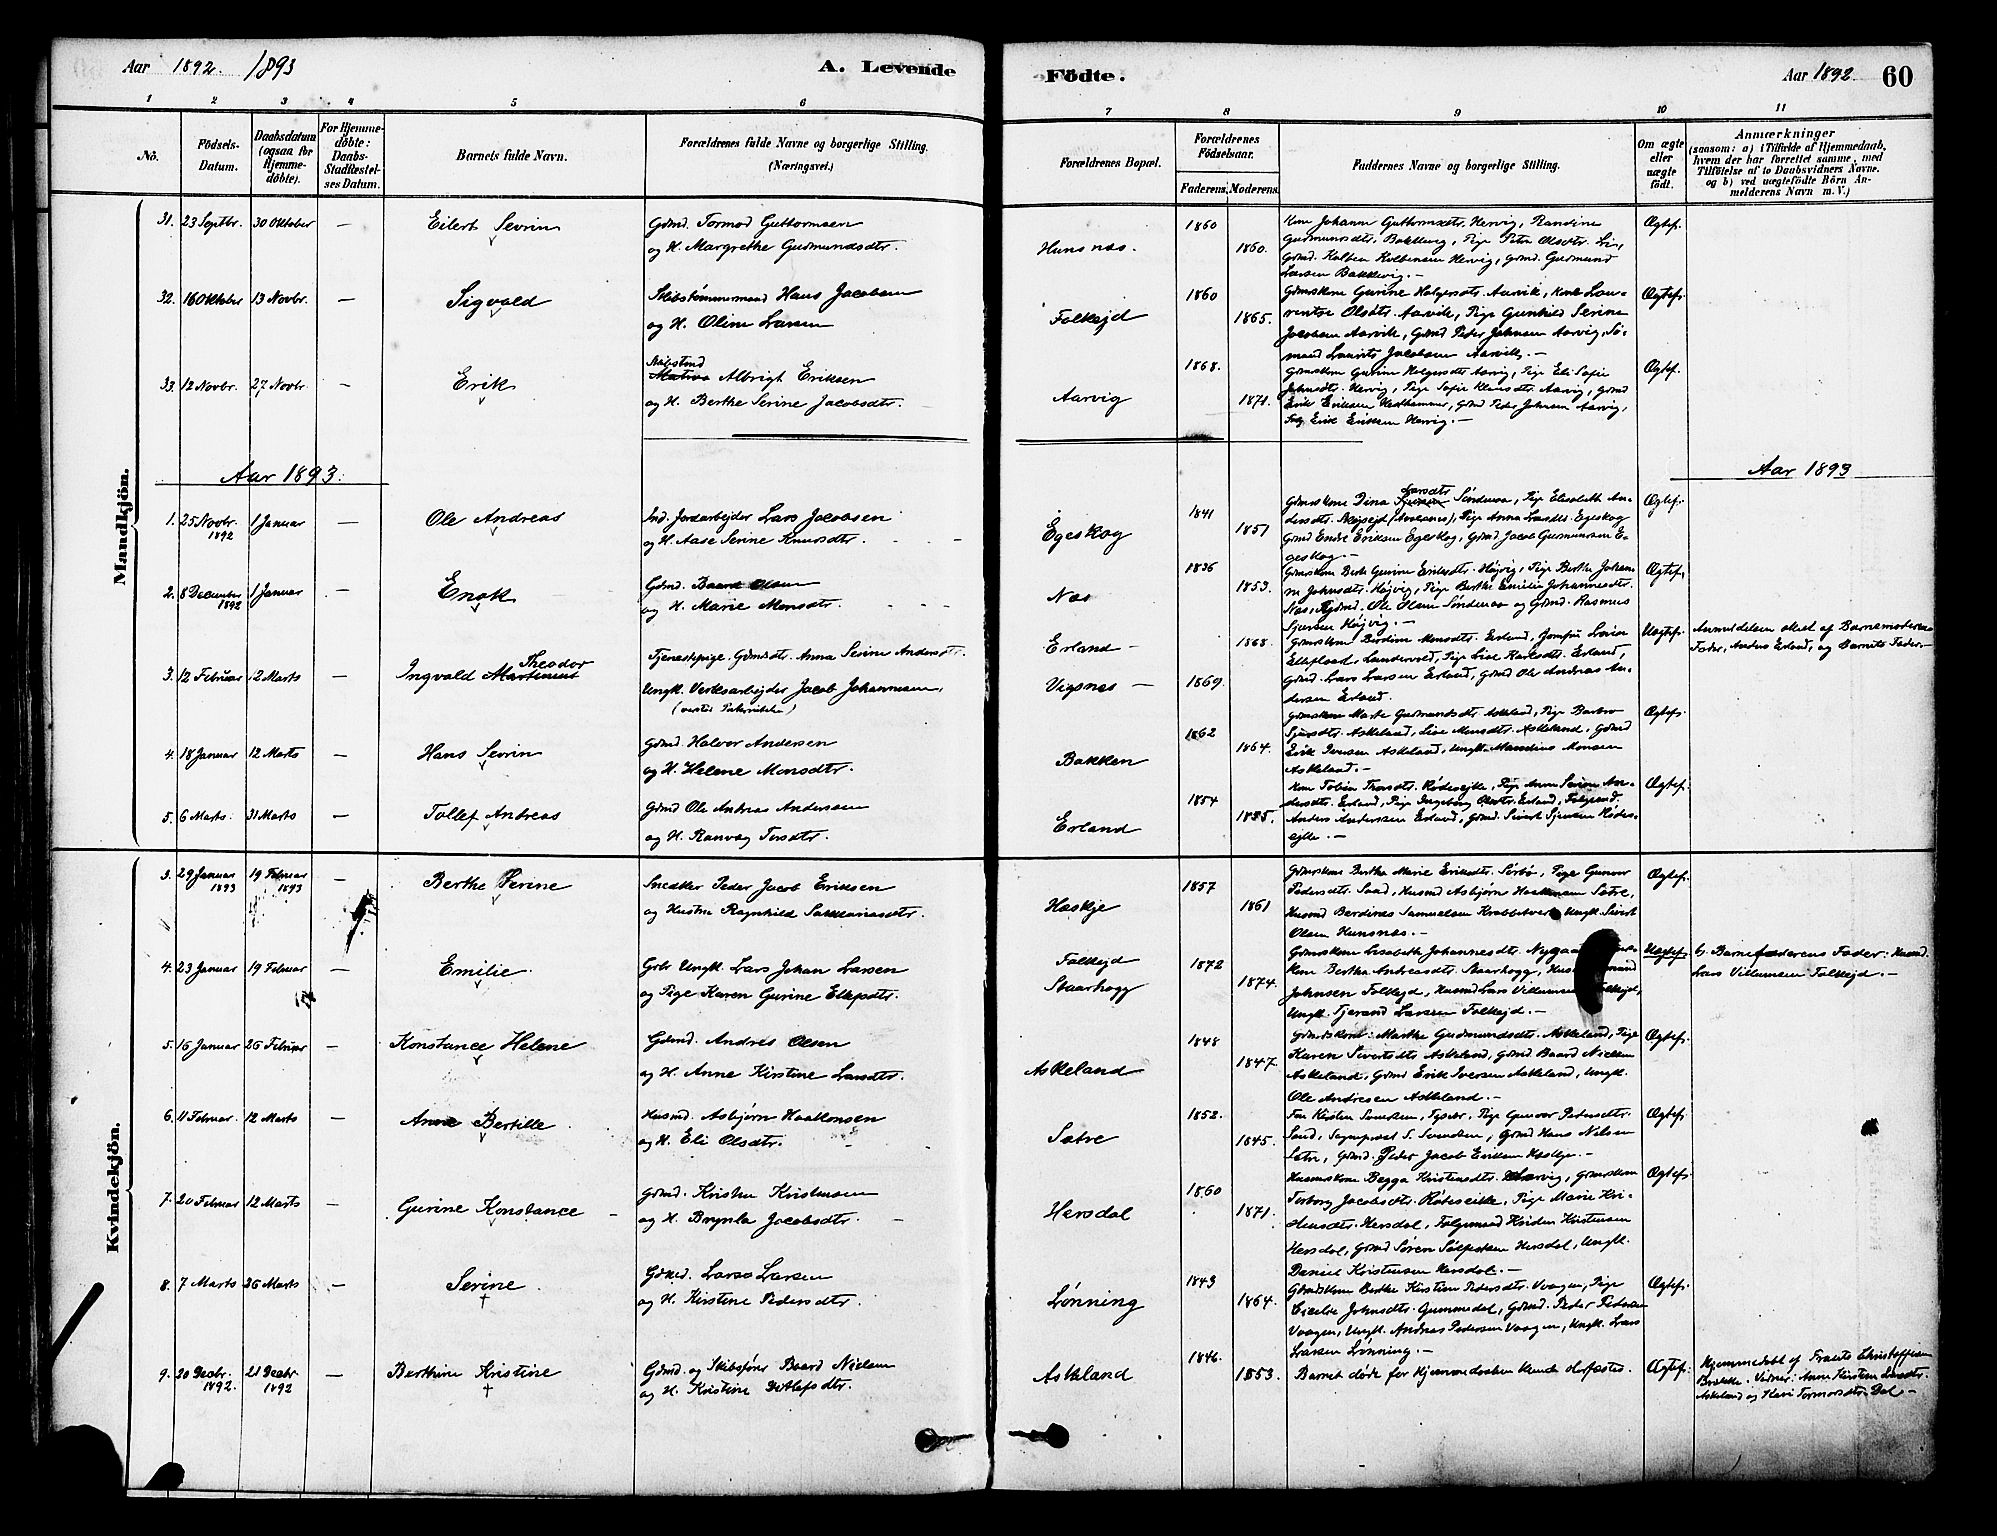 Aar 1892. 1893
A. Levende
Födte.
Aar 1892. 60
1 2 3 4 5 6 7 8 9 10 11
No.
Födsels-
Datum.
Daabsdatum
(ogsaa for
Hjemme-
döbte).
For Hjemme-
döbte:
Daabs-
Stadfæstel-
ses Datum.
Barnets fulde Navn.
Forældrenes fulde Navne og borgerlige Stilling.
(Næringsvei.)
Forældrenes Bopæl.
Forældrenes
Födselsaar.
Faderens. Moderens.
Faddernes Navne og borgerlige Stilling.
Om ægte
eller
uægte
födt.
Anmærkninger
(saasom: a) i Tilfælde af Hjemmedaab,
hvem der har forrettet samme, med
Tilföielse af to Daabsvidners Navne.
og b) ved uægtefödte Börn An-
melderens Navn m. V.)
Mandkjön.
31. 23 Septbr. 30 Oktober — Eilert Sevrin
Gdmd. Tormod Guttormsen
og H. Margrethe Gudmundsdtr.
Hunsnæs. 1860 1860.
Kone Johanne Guttormsdtr. Hervig, Randine
Gudmundsdtr. Bakkevig, Pige Petra Olsdtr. Li,
Gdmd. Kolben Kolbensen Hervig, Gdmd. Gudmund
Larsen Bakkevig. —
Ægtef.
32. 16 Oktober 13 Novbr. — Sigvald
Skibstømmermand Hans Jacobsen
og H. Oline Larsen
Folkejd 1860 1865.
Gdmdskone Gurine Holgersdtr. Aarvik, Kone Lau-
rentse Olsdtr. Aarvik, Pige Gunhild Serine
Jacobsen Aarvik, Gdmd Peder Johnsen Aarvig, Sø-
mand Laurits Jacobsen Aarvik. —
Ægtef.
33. 12 Novbr. 27 Novbr. — Erik
Matros Albrigt Eriksen
og H. Berthe Serine Jacobsdtr.
Aarvig 1868. 1871.
Gdmdskone Gurine Holgersdtr. Aarvig, Pige Eli Sofie
Johnsdtr. Hervig, Pige Sofie Klausdtr. Aarvig, Gdmd
Erik Eriksen Hesthammer, Gdmd Peder Johnsen Aarvig,
Erik Eriksen Hervig. —
Ægtef.
Aar 1893.
Aar 1893
1. 25 Novbr. 1892 1 Januar — Ole Andreas
Ind. Jordarbejder Lars Jacobsen
og H. Aase Serine Knudsdtr.
Egeskog 1841 1851
Gdmdskone Dina Larsdtr Sønderaa, Pige Elisabeth An-
dersdtr. Pige Anna Larsdtr. Egeskog
Gdmd Endre Eriksen Egeskog, Gdmd Jacob Gudmundsen E-
geskog. —
Ægtef.
2. 8 December 1892 1 Januar — Enok
Gdmd. Baard Olsen
og H. Marie Monsdtr.
Næs 1836 1853.
Gdmdskone Berte Gurine Eriksdtr. Højvig, Pige Berthe Johan-
ne Johnsdtr. Højvig, Pige Berthe Emilie Johannesdtr.
Næs, Gdmd. Ole Olsen Sønderaa og Gdmd. Rasmus
Sjursen Højvig. —
Ægtef.
3. 12 Februar 12 Marts — Ingvald Martinius Theodor
Tjenestepige Gdmdsdtr. Anna Serine Andersdtr.
Ungk. Verksarbejder Jacob Johannesen,
Erland — 1868.
Vigsnes — 1869.
Gdmdskone Berdine Monsdtr. Erland, Jomfru Lovise
Landervold, Pige Lise Karlsdtr. Erland,
Gdmd. Lars Larsen Erland, Gdmd Ole Andreas An-
dersen Erland.
Uægtef.
Anmeldelsen sket af Barnemoderens
Fader, Anders Erland, og Barnets Fader. —
4. 18 Januar 12 Marts — Hans Sevrin
Gdmd. Halvor Andersen
og H. Helene Monsdtr.
Bakken 1862 1864.
Gdmdskone Marte Gudmundsdtr. Askeland, Pige Barbro
Sjursdtr. Askeland, Lise Monsdtr. Askeland, Gdmd
Erik Iversen Askeland, Ungk. Mandius Monsen
Askeland. —
Ægtef.
5. 6 Marts. 31 Marts — Tollef Andreas
Gdmd Ole Andreas Andersen
og H. Ranvag Torsdtr.
Erland 1854 1855.
Kone Tobine Thorsdtr. Rødesejke, Pige Anne Serine An-
dersdtr. Erland, Pige Ingeborg Olsdtr. Erland, Folgemd.
Anders Andersen Erland, Gdmd. Sivert Sjursen Rødes-
ejke. —
Ægtef.
Kvindekjön.
3. 29 Januar 1893 19 Februar 1893 — Berthe Perine
Snedker Peder Jacob Eriksen
og Hustru Ragnhild Sakkariasdtr.
Høskje 1857 1861
Gdmdskone Berthe Marie Eriksdtr. Sørbø, Pige Gunvor
Pedersdtr. Sand, Husmd Asbjørn Haakonsen Sætre,
Husmd Berdines Samuelsen Krabbetveit, Ungk. Sivert
Olsen Hunsnæs. —
Ægtef.
4. 23 Januar 19 Februar — Emilie.
Grbr Ungk. Lars Johan Larsen
og Pige Karen Gurine Ellefsdtr.
Folkejd 1872
Staarhogg 1874.
Gdmdskone Lisabeth Johannesdtr.
kone Bertha Andreasdtr. Staarhogg,
Johnsen Folkejd, Husmd Lars Villumsen Folkejd,
Ungk. Tjerand Larsen Folkejd. —
Uægtef.
b. Barnefaderens Fader: Husmd.
Lars Villumsen Folkejd. —
5. 16 Januar 26 Februar — Konstance Helene
Gdmd. Andres Olsen
og H. Anne Kirstine Larsdtr.
Askeland 1848 1847.
Gdmdskone: Marthe Gudmundsdtr. Askeland, Pige
Karen Sivertsdtr Askeland, Gdmd Baard Nielsen
Askeland, Gdmd Erik Iversen Askeland, Ungk.
Ole Andresen Askeland. —
Ægtef.
6. 11 Februar. 12 Marts — Anne Bertille
Husmd. Asbjørn Haakonsen
og H. Eli Olsdtr.
Sætre 1852. 1845.
Fru Kirsten Svendsen, Pige Gunvor Pedersdtr.
Sand, Sogneprest S. Svendsen, Gdmd Hans Nilsen
Sætre, Gdmd. Peder Jacob Eriksen Høskje. —
Ægtef.
7. 20 Februar 12 Marts — Gurine Konstance
Gdmd. Kristen Kristensen
og H. Brynla Jacobsdtr.
Hersdal 1860 1871.
Husmdskone Begga Kristensdtr. Gdmdskone
Torborg Jacobsdtr. Rødeseike, Pige Marie Kri-
stensdtr. Hersdal, Folgemand Kristen Kristensen
Hersdal, Gdmd Søren Sølfestsen Hersdal, Ungk.
Daniel Kristensen Hersdal. —
Ægtef.
8. 7 Marts 26 Marts — Serine.
Gdmd. Lars Larsen
og H. Kirstine Pedersdtr.
Lønning 1843 1864.
Gdmdskone Berthe Kirstine Pedersdtr. Vaagen, Pige
Johnsdtr. Gummedal, Gdmd. Peder Pedersen
Vaagen, Ungk. Andreas Pedersen Vaagen, Ungk. Lars
Larsen Lønning. —
Ægtef.
9. 20 Decbr. 1892. 21 Decbr. 1892 — Berthine Kristine
Gdmd. og Skibsfører Baard Nielsen
og H. Kristine Detlefsdtr.
Askeland 1846. 1853.
Barnet døde før Hjemmedaaben kunde stadfæstes.
Ægtef.
Hjemmedøbt af Frants Christoffersen
Brække. Vidner: Anne Kirstine Larsdtr.
Askeland og Kari Tormodsdtr. Dal —